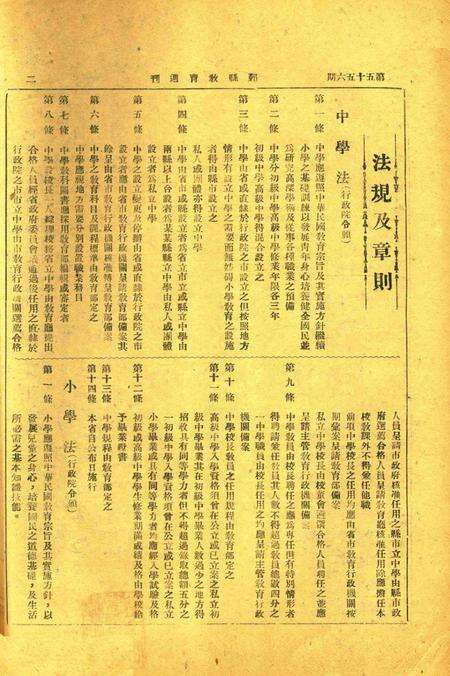 第五十五六期
鄞縣教育週刊
二
法規及章則
中學法（行政院令頒）
第一條
中學應遵照中華民國教育宗旨及其實施方針繼續
小學之基礎訓練以發展青年身心培養健全國民並
為研究高深學術及從事各種職業之預備
第二條
中學分初級中學高級中學修業年限各三年
初級中學高級中學得混合設立之
第三條
中學由省或直隸於行政院之市設立之但按照地方
情形有設立中學之需要而無妨碍小學教育之設施
者得由縣市設立之
私人或團體亦得設立中學
第四條
中學由省市或縣設立者為省立市立或縣立中學由
兩縣以上合設者為某某縣縣立中學由私人或團體
設立者為私立中學
第五條
中學之設立變更及停辦由省或直隸於行政院之市
設立者應由省市教育行政機關呈請教育部備案其
餘呈由省市教育行政機關核准轉呈教育部備案
第六條
中學之教育科目及課程標準由教育部定之
中學應視地方需要分別設置職業科目
第七條
中學教科圖書應採用教育部編輯或審定者
第八條
中學設校長一人綜理校務省立中學由教育廳提出
合格人員經省政府委員會議通過後任用之直隸於
行政院之市市立中學由市教育行政機關選薦合格
人員呈請市政府核准任用之縣市立中學由縣市政
府選薦合格人員呈請教育廳核准任用除應擔任本
校教課外不得兼任他職
前項中學校長之任用均應由省市教育行政機關按
期彙案呈請教育部備案
私立中學校長由校董會遴選合格人員聘任之並應
呈請主管教育行政機關備案
第九條
中學教員由校長聘任之應為專任但有特別情形者
得聘請兼任教員其人數不得超過教員總數四分之
一中學職員由校長任用之均應呈請主管教育行政
機關備案
第十條
中學校長教員之任用規程由教育部定之
第十一條
高級中學入學資格須曾在公立或已立案之私立初
級中學畢業其在初級中學畢業人數過少之地方得
招收具有同等學力者但不得超過錄取總額五分之
一初級中學入學資格須曾在公立或已立案之私立
小學畢業或具有同等學力者均應經入學試驗及格
第十二條
初級或高級中學學生修業期滿成績及格由學校給
予畢業證書
第十三條
中學規程由教育部定之
第十四條
本省自公布日施行
小學法（行政院令頒）
第一條
小學應遵照中華民國教育宗旨及其實施方針，以
發展兒童之身心，培養國民之道德基礎，及生活
所必需之基本知識技能。